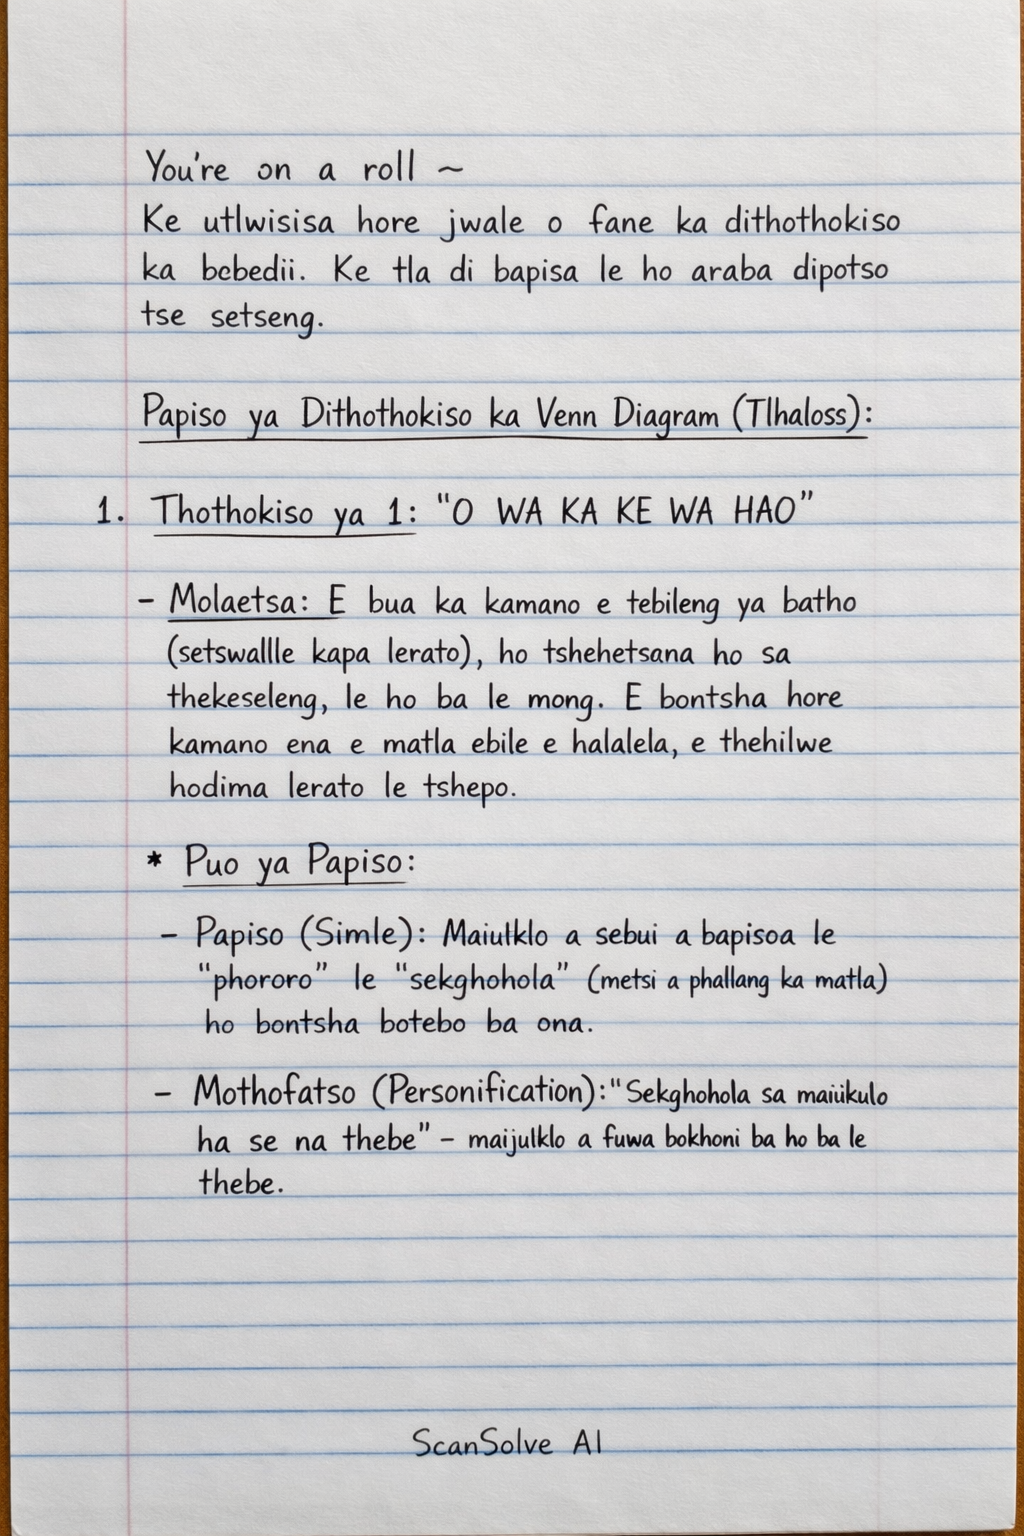 You're on a roll ~
Ke utlwisisa hore jwale o fane ka dithothokiso
ka bcbedii. Ke tla di bapisa le ho araba dipotso
tse setseng.
Papiso ya Dithothokiso ka Venn Diagram (Tlhaloss):
1. Thothokiso ya 1: "O WA KA KE WA HAO"
- Molaetsa: E bua ka kamano e tebileng ya batho
(setswallle kapa lerato), ho tshehetsana ho sa
thekeseleng, le ho ba le mong. E bontsha hore
kamano ena e matla ebile e halalela, e thehilwe
hodima lerato le tshepo.
* Puo ya Papiso:
- Papiso (Simle): Maiutklo a sebui a bapisoa le
"phororo" le "sekghohola" (metsi a phallang ka matla)
ho bontsha botebo ba ona.
- Mothofatso (Personification): "Sekghohola sa maiüikulo
ha se na thebe" - maijulklo a fuwa bokhoni ba ho ba le
thebe.
ScanSolve AI